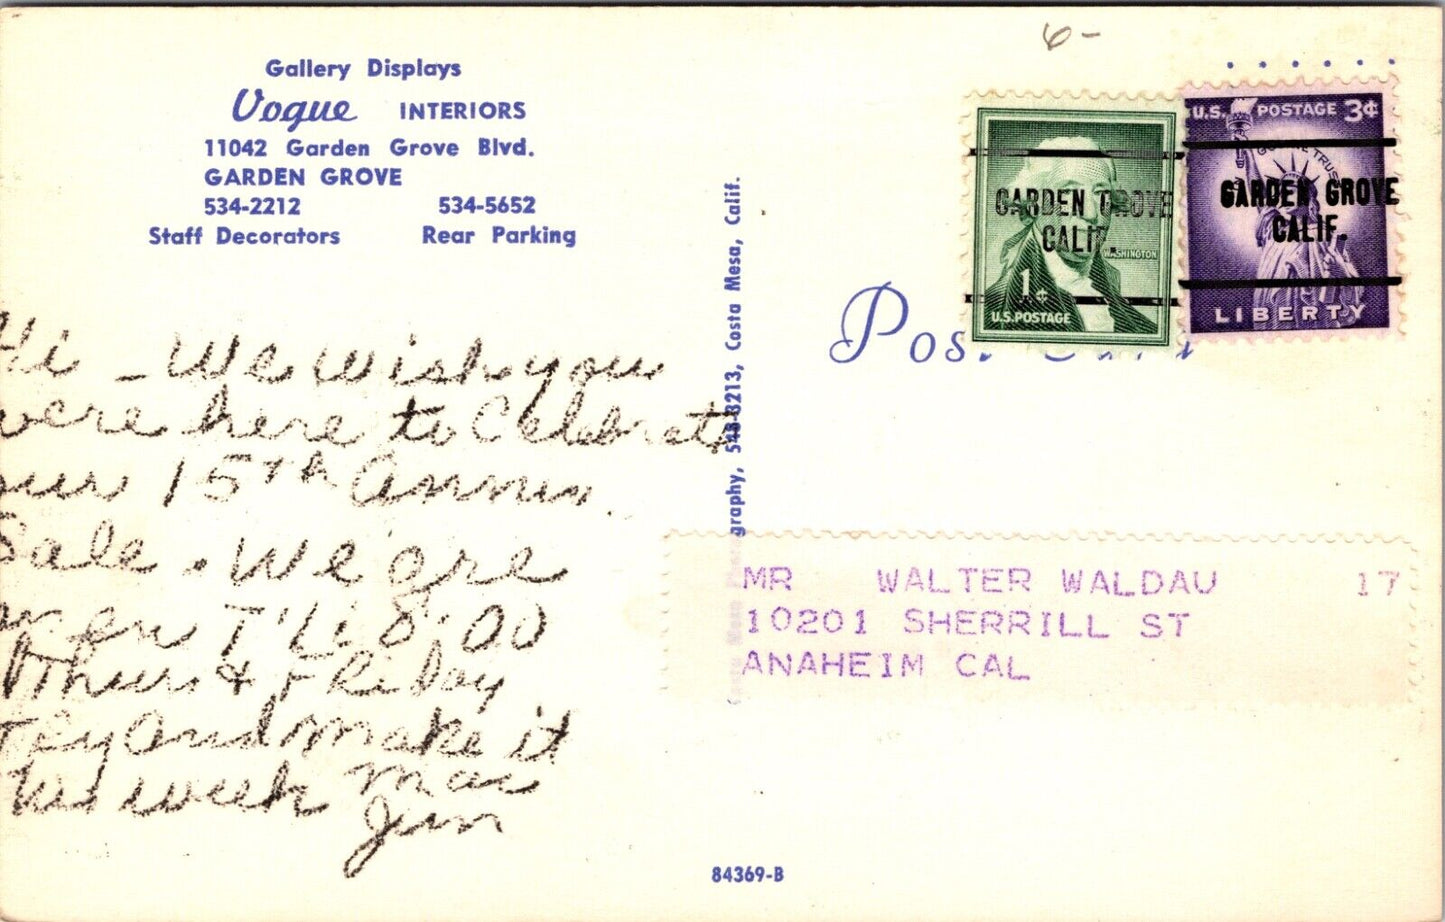 6-
Gallery Displays
Vogue INTERIORS
11042 Garden Grove Blvd.
GARDEN GROVE
534-2212 534-5652
Staff Decorators Rear Parking
Hi - We wish you
were here to Celebrate
our 15th Annis.
Sale. We are
open T'Li 8:00
Thurs & Friday
Try and make it
this week Mac
Jim
graphy, 548-3213, Costa Mesa, Calif.
84369-B
Post Card
GARDEN GROVE
CALIF.
WASHINGTON
1¢
U.S. POSTAGE
U.S. POSTAGE 3¢
IN GOD WE TRUST
GARDEN GROVE
CALIF.
LIBERTY
MR WALTER WALDAU 17
10201 SHERRILL ST
ANAHEIM CAL